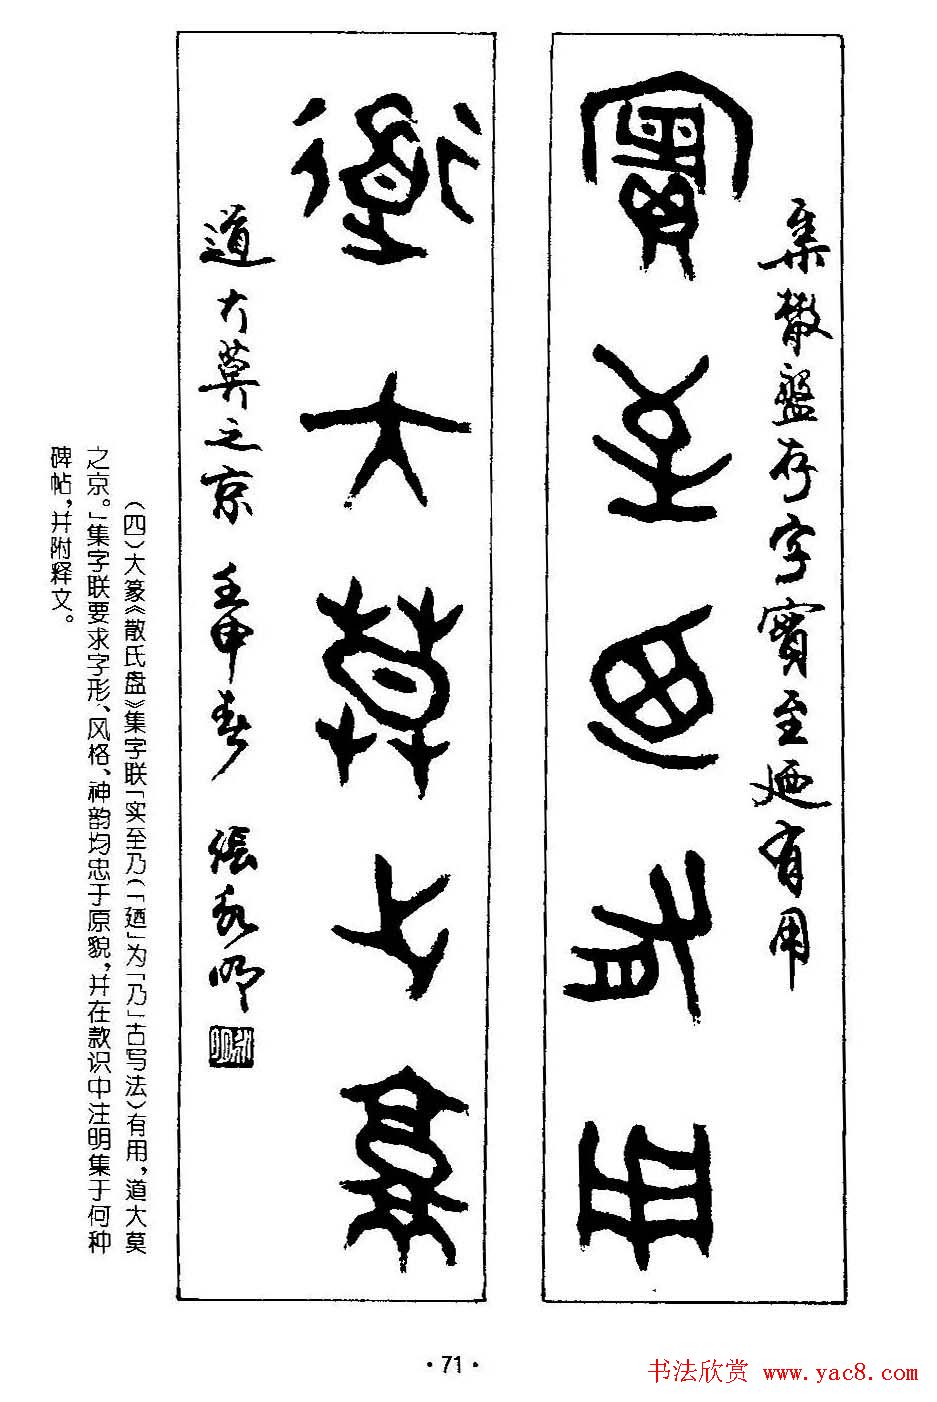 實至廼有用
集散盤存字實至廼有用
道大莫之京
道大莫之京 壬申春 張永明
(四)大篆《散氏盘》集字联「实至乃(「廼」为「乃」古写法)有用,道大莫
之京。」集字联要求字形、风格、神韵均忠于原貌,并在款识中注明集于何种
碑帖,并附释文。
·71·
书法欣赏 www.yac8.com